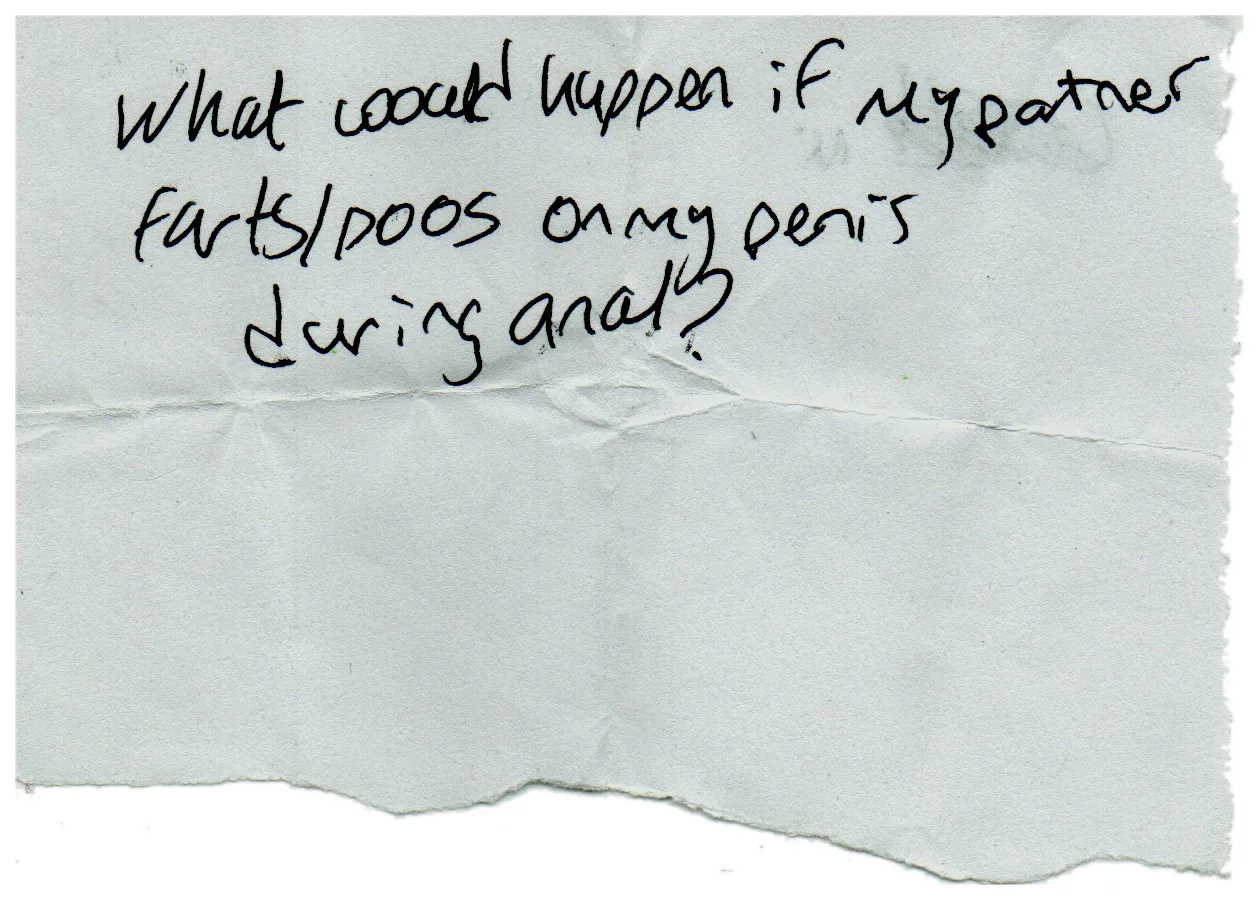 What would happen if my partner
farts/poos on my penis
during anal?